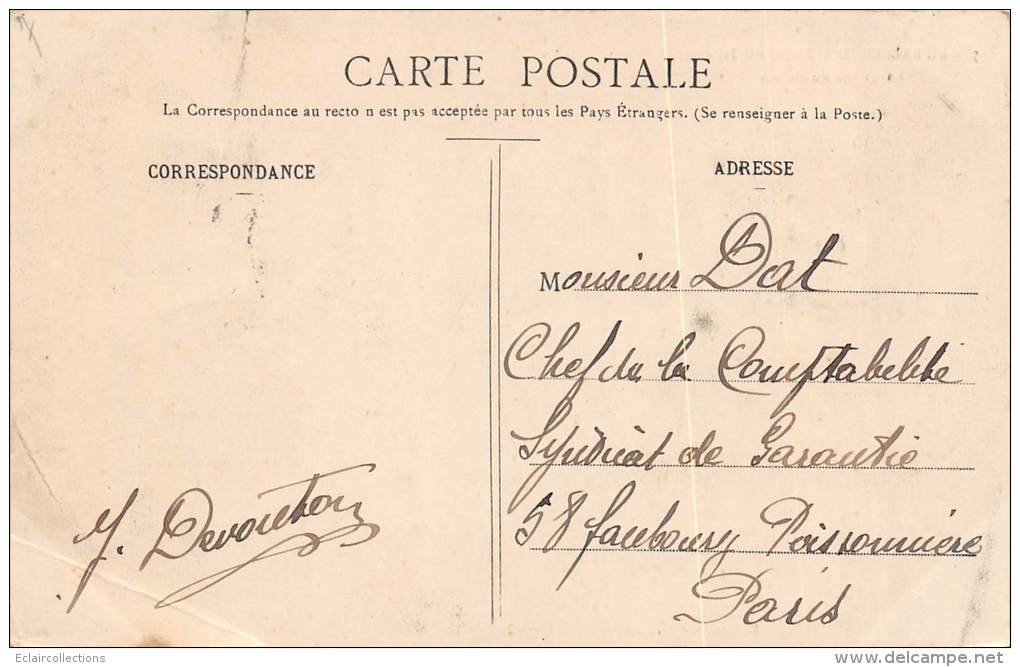 CARTE POSTALE
La Correspondance au recto n est pas acceptée par tous les Pays Étrangers. (Se renseigner à la Poste.)
CORRESPONDANCE
J. Devouton
ADRESSE
Monsieur Dat
Chef de la Comptabilité
Syndicat de Garantie
58 faubourg Poissonnière
Paris
Eclaircollections
delcampe.net